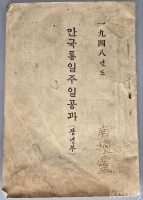 一九四八년도
만국통일주일공과 (장년부)